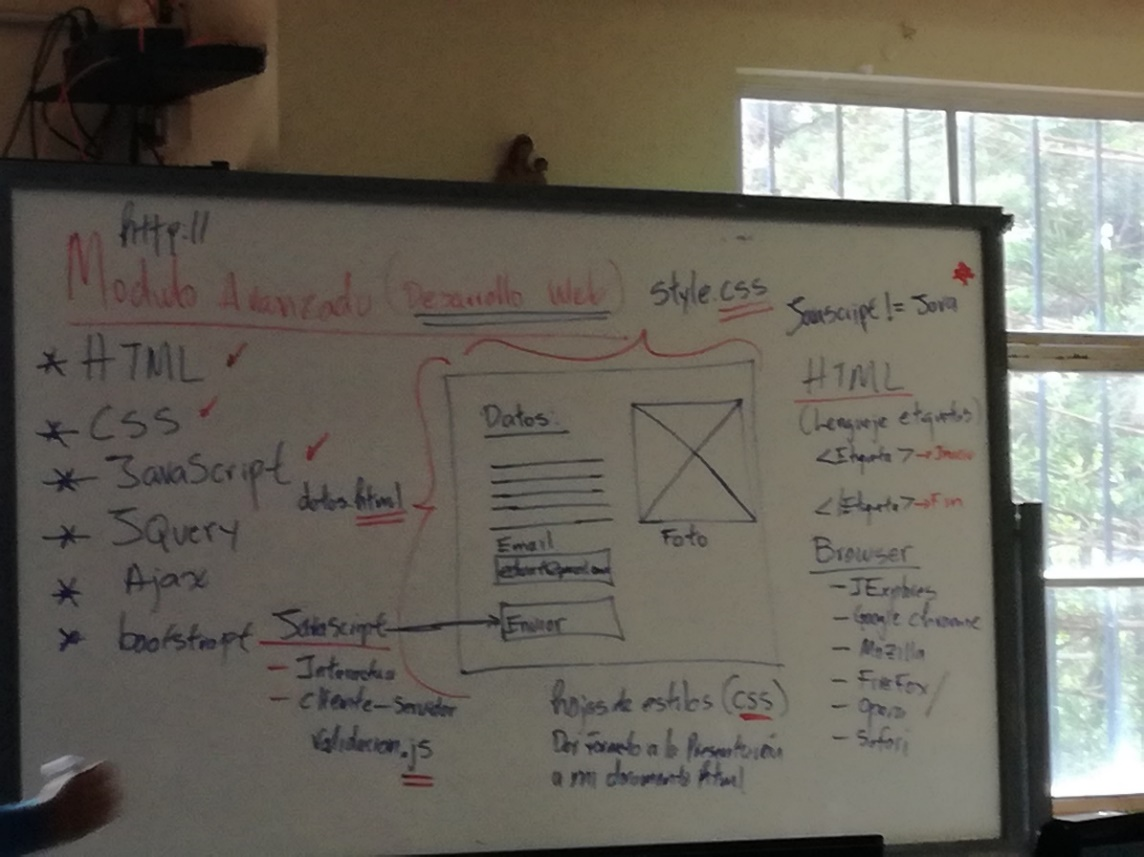 http://
Modulo Avanzado (Desarrollo Web)
style.css
Javascript != Java
* HTML ✓
* CSS ✓
* JavaScript ✓
* JQuery
* Ajax
* bootstrapt
datos.html
Datos:
Foto
Email
Enviar
Javascript
- Interactua
- cliente-servidor
validacion.js
hojas de estilos (css)
Dar formato a la Presentación
a mi documento html
HTML
(Lenguaje etiquetas)
<Etiqueta> → Inicio
</Etiqueta> → Fin
Browser
- IExplores
- Google chromne
- Mozilla
- FireFox/
- opera
- Safari